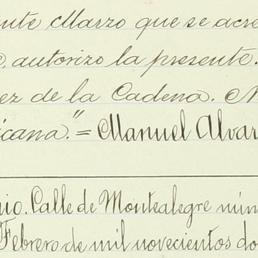 ente Marzo que se acre
autorizo la presente.
ez de la Cadena.
icana."=Manuel Alvar
io. Calle de Montealegre núm
Febrero de mil novecientos do